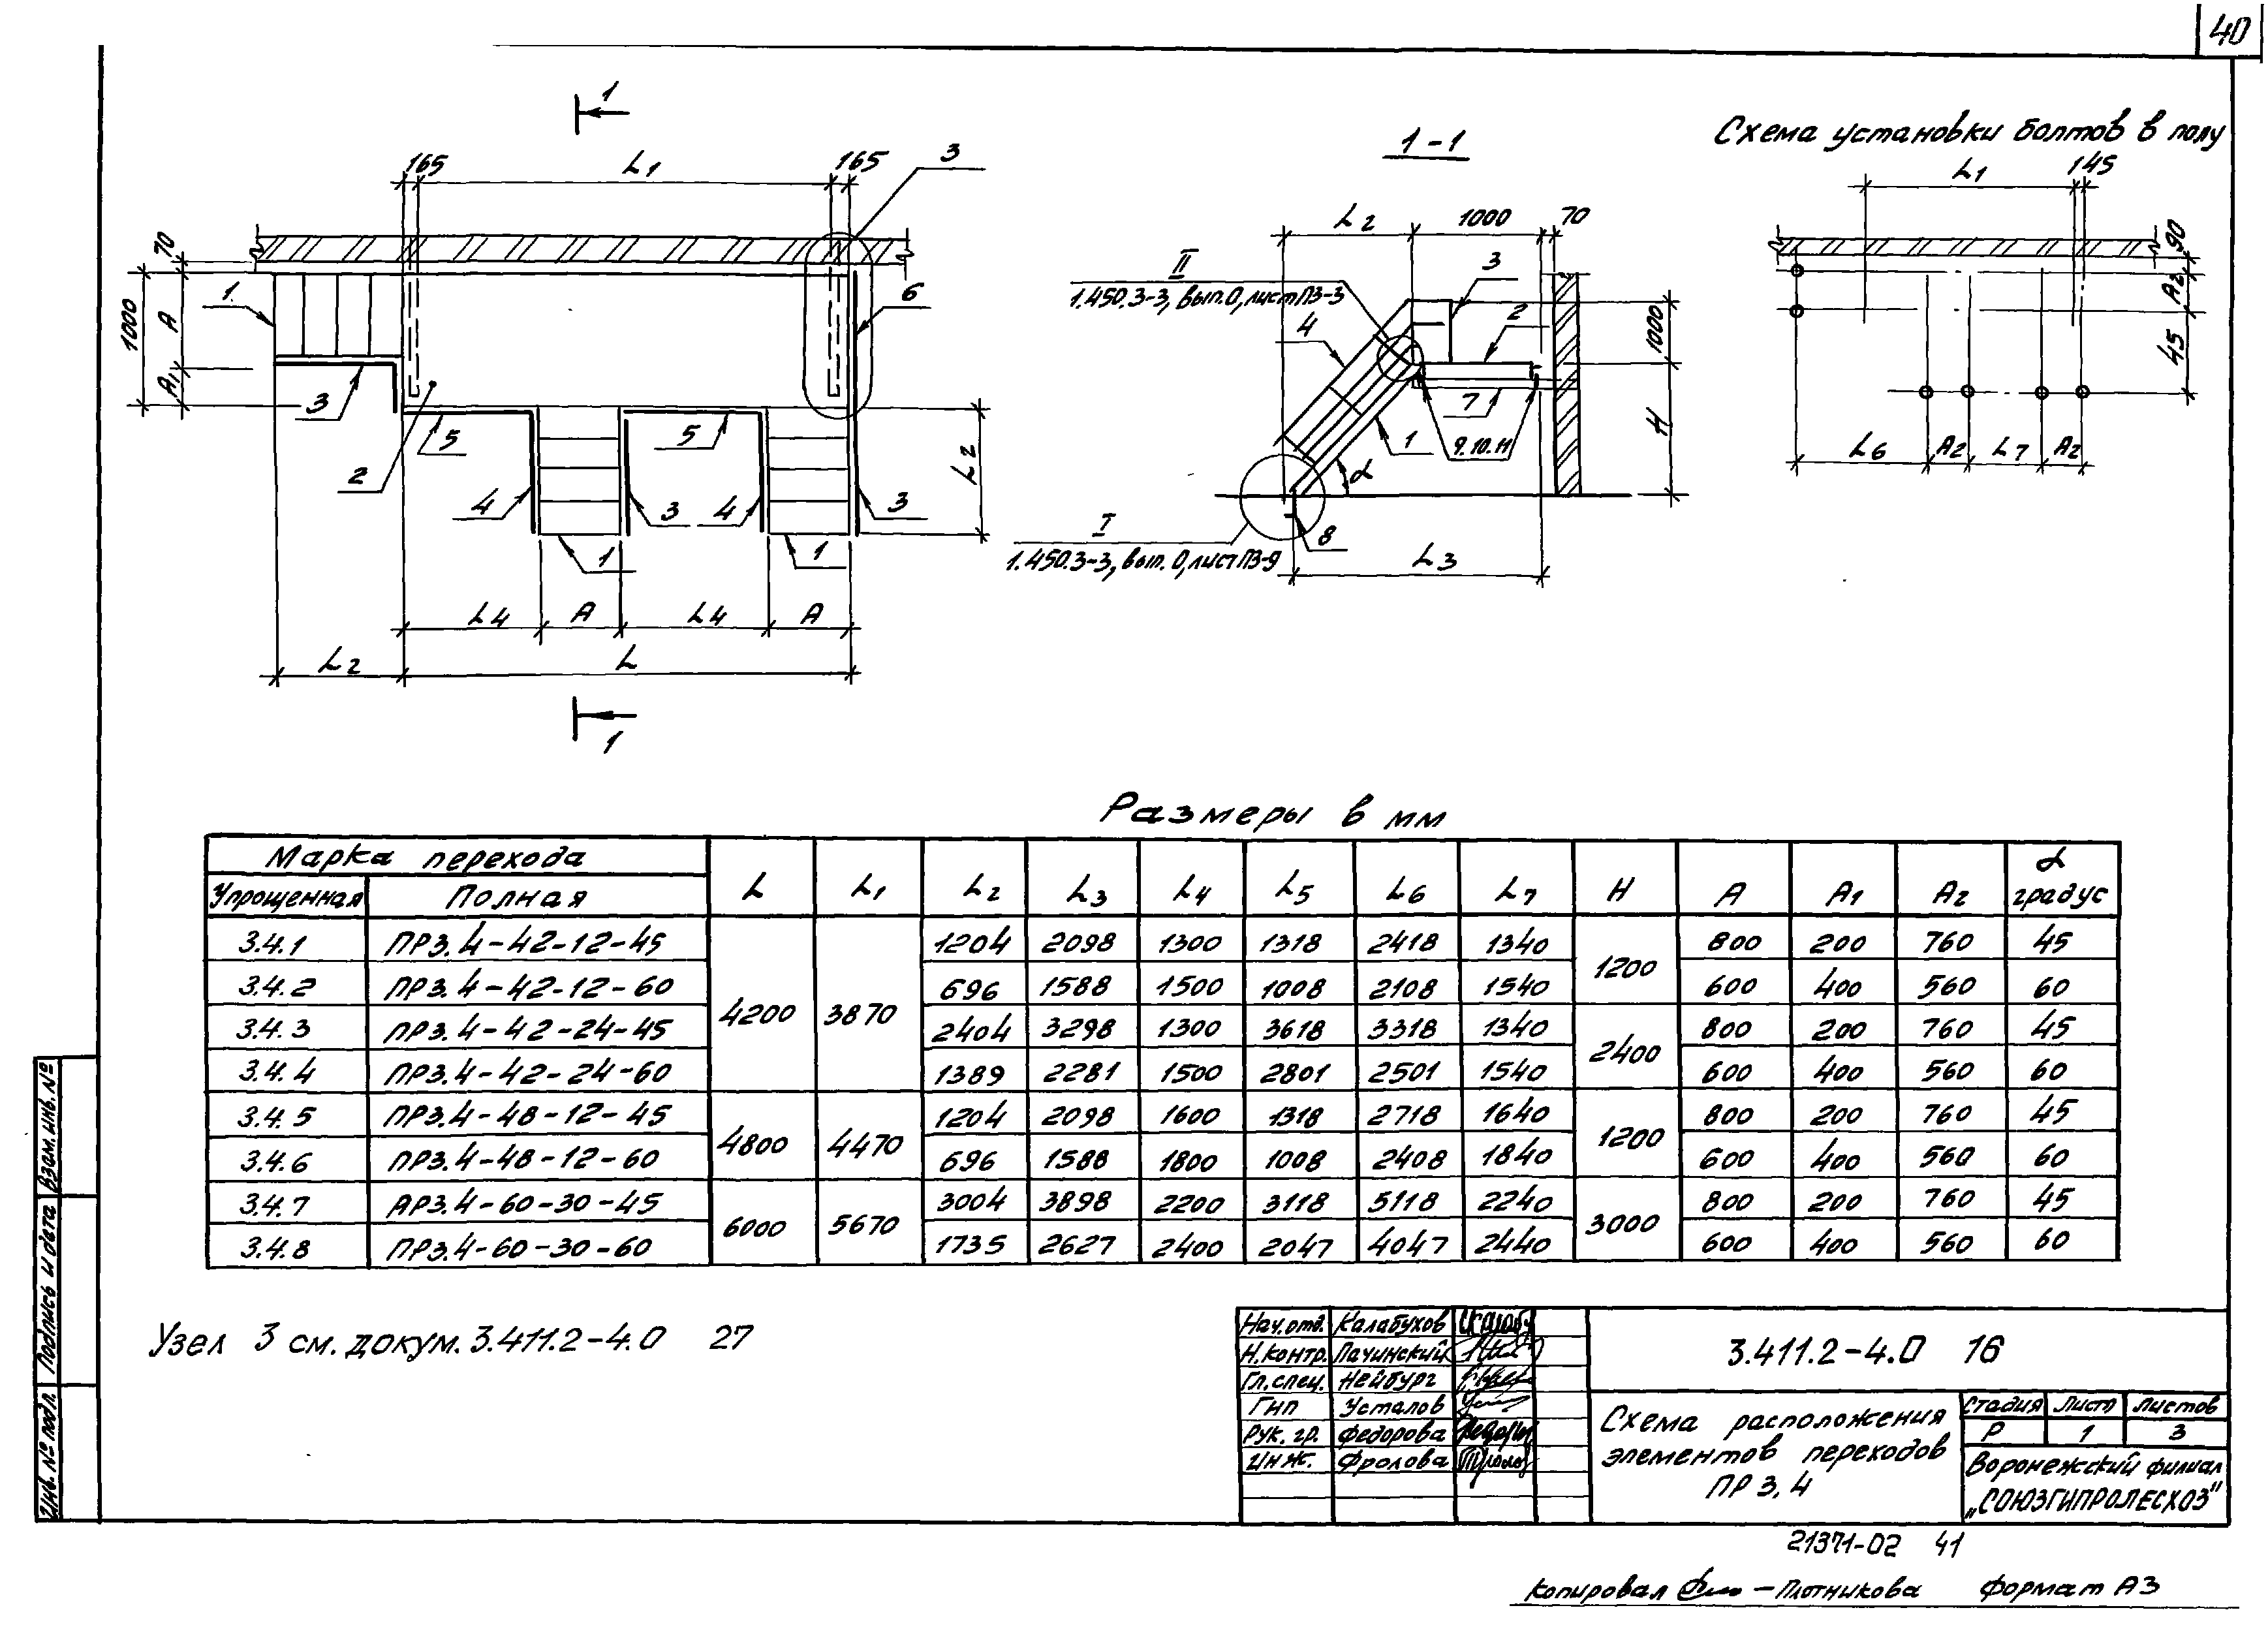 40
1
165 L1 165 3
70
1000
A
A1
1
3
2
5
5
6
4 3 4 3
1 1
L2
L4 A L4 A
L2 L
1
1-1
L2 1000 70
II
1.450.3-3, вып.0, лист ПЗ-3
4
3
2
1000
7
H
1
9.10.11
α
I
1.450.3-3, вып. 0, лист ПЗ-9
8
L3
Схема установки болтов в полу
L1 145
90
A2
45
L6 A2 L7 A2
Размеры в мм
Марка перехода L L1 L2 L3 L4 L5 L6 L7 H A A1 A2 α градус
Упрощенная Полная
3.4.1 ПР3.4-42-12-45 4200 3870 1204 2098 1300 1318 2418 1340 1200 800 200 760 45
3.4.2 ПР3.4-42-12-60 696 1588 1500 1008 2108 1540 600 400 560 60
3.4.3 ПР3.4-42-24-45 2404 3298 1300 3618 3318 1340 2400 800 200 760 45
3.4.4 ПР3.4-42-24-60 1389 2281 1500 2801 2501 1540 600 400 560 60
3.4.5 ПР3.4-48-12-45 4800 4470 1204 2098 1600 1318 2718 1640 1200 800 200 760 45
3.4.6 ПР3.4-48-12-60 696 1588 1800 1008 2408 1840 600 400 560 60
3.4.7 АР3.4-60-30-45 6000 5670 3004 3898 2200 3118 5118 2240 3000 800 200 760 45
3.4.8 ПР3.4-60-30-60 1735 2627 2400 2047 4047 2440 600 400 560 60
Узел 3 см. докум. 3.411.2-4.0 27
Взам. инв. №
Подпись и дата
Инв. № подл.
Нач. отд. Калабухов
Н. контр. Пачинский
Гл. спец. Нейбург
Гип Усталов
Рук. гр. Федорова
Инж. Фролова
3.411.2-4.0 16
Схема расположения
элементов переходов
ПР 3, 4
Стадия Лист Листов
Р 1 3
Воронежский филиал
„СОЮЗГИПРОЛЕСХОЗ"
21371-02 41
Копировал – Плотникова Формат А3